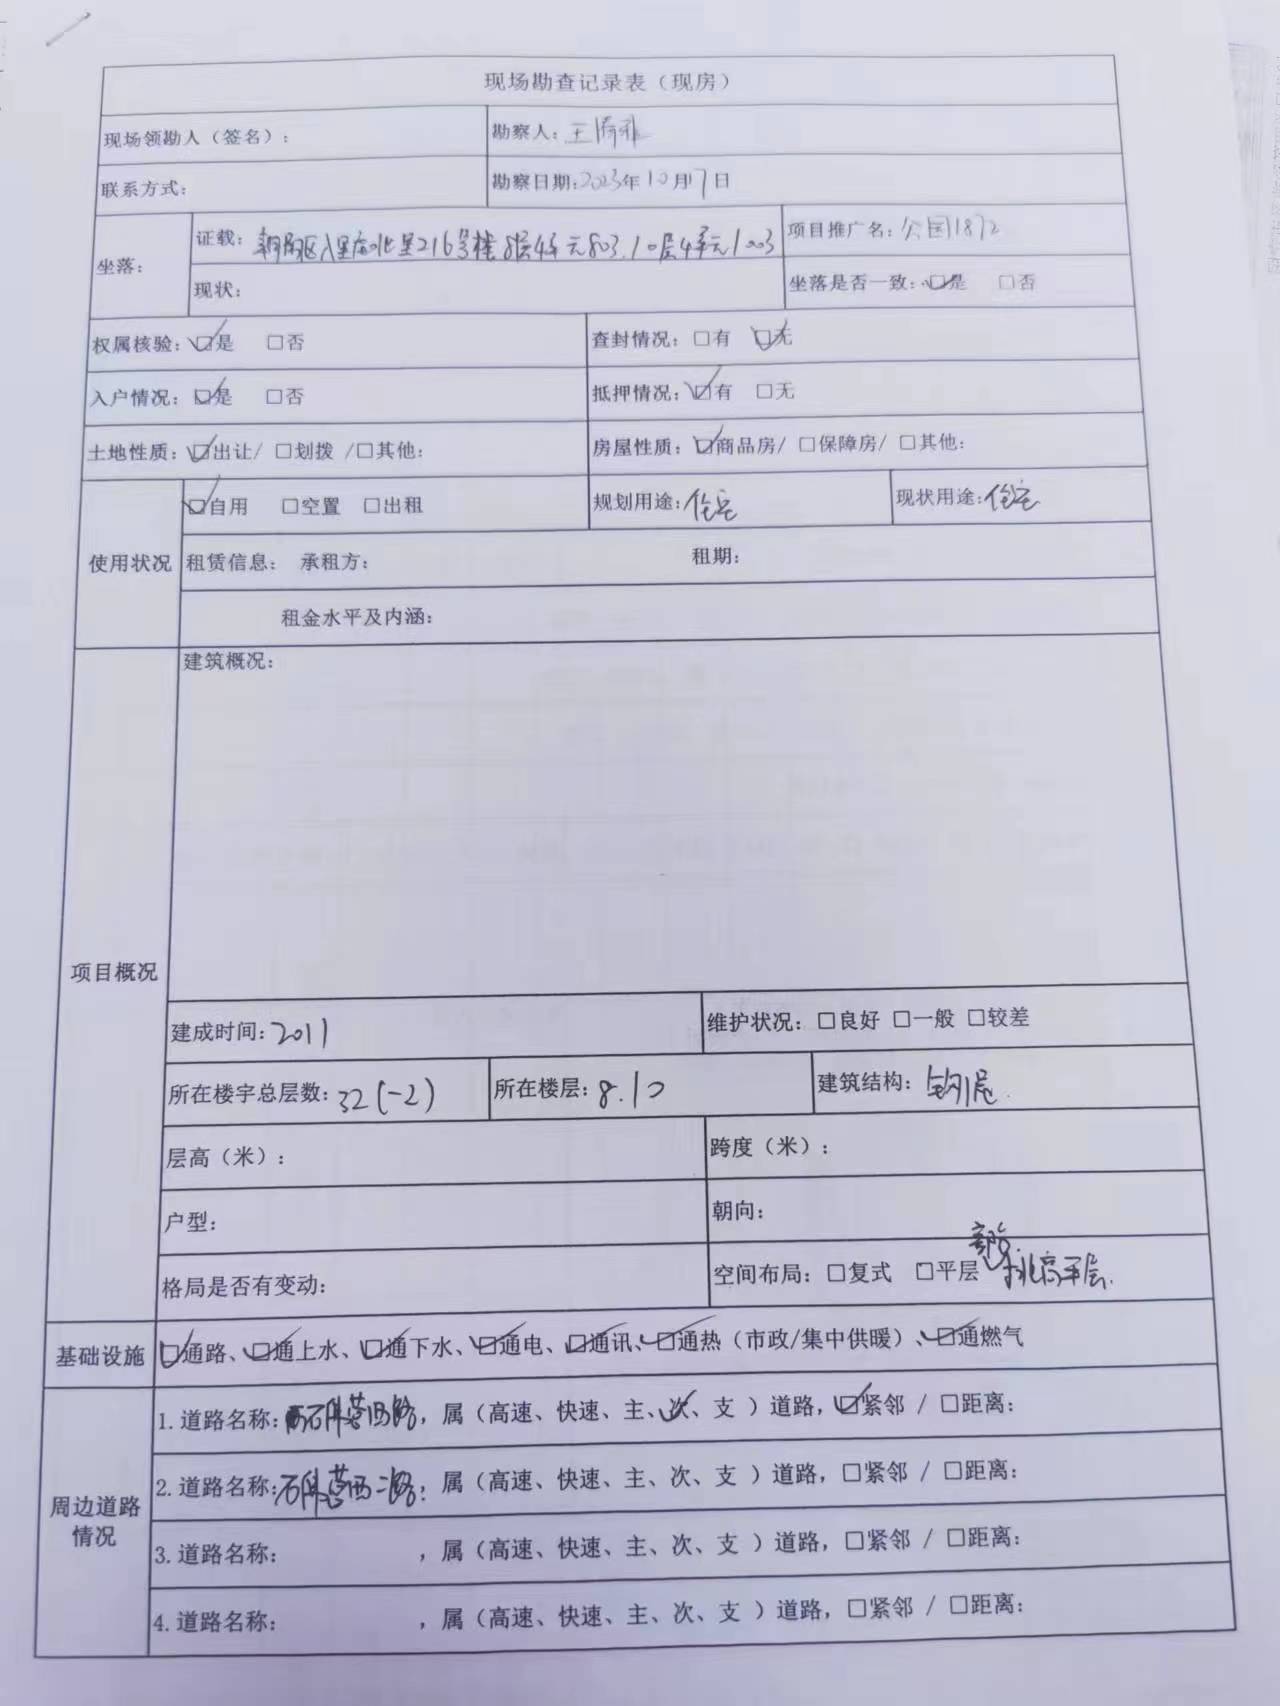 现场勘查记录表（现房）
现场领勘人（签名）： 勘察人：王
联系方式： 勘察日期：2023年10月17日
坐落： 证载：朝阳区八里庄北里216号楼8层4单元803.10层4单元1003 项目推广名：公园1872
现状： 坐落是否一致：☑是 □否
权属核验：☑是 □否 查封情况：□有 ☑无
入户情况：☑是 □否 抵押情况：☑有 □无
土地性质：☑出让/ □划拨 /□其他： 房屋性质：☑商品房/ □保障房/ □其他：
使用状况 ☑自用 □空置 □出租 规划用途：住宅 现状用途：住宅
租赁信息： 承租方： 租期：
租金水平及内涵：
项目概况 建筑概况：
建成时间：2011 维护状况：□良好 □一般 □较差
所在楼宇总层数：32(-2) 所在楼层：8.10 建筑结构：钢混
层高（米）： 跨度（米）：
户型： 朝向：
格局是否有变动： 空间布局：□复式 □平层 部分挑高平层.
基础设施 ☑通路、☑通上水、☑通下水、☑通电、☑通讯、☑通热（市政/集中供暖）、☑通燃气
周边道路情况 1.道路名称：石佛营西路，属（高速、快速、主、次、支 ）道路，☑紧邻 / □距离：
2.道路名称：石佛营西二路，属（高速、快速、主、次、支 ）道路，□紧邻 / □距离：
3.道路名称： ，属（高速、快速、主、次、支 ）道路，□紧邻 / □距离：
4.道路名称： ，属（高速、快速、主、次、支 ）道路，□紧邻 / □距离：